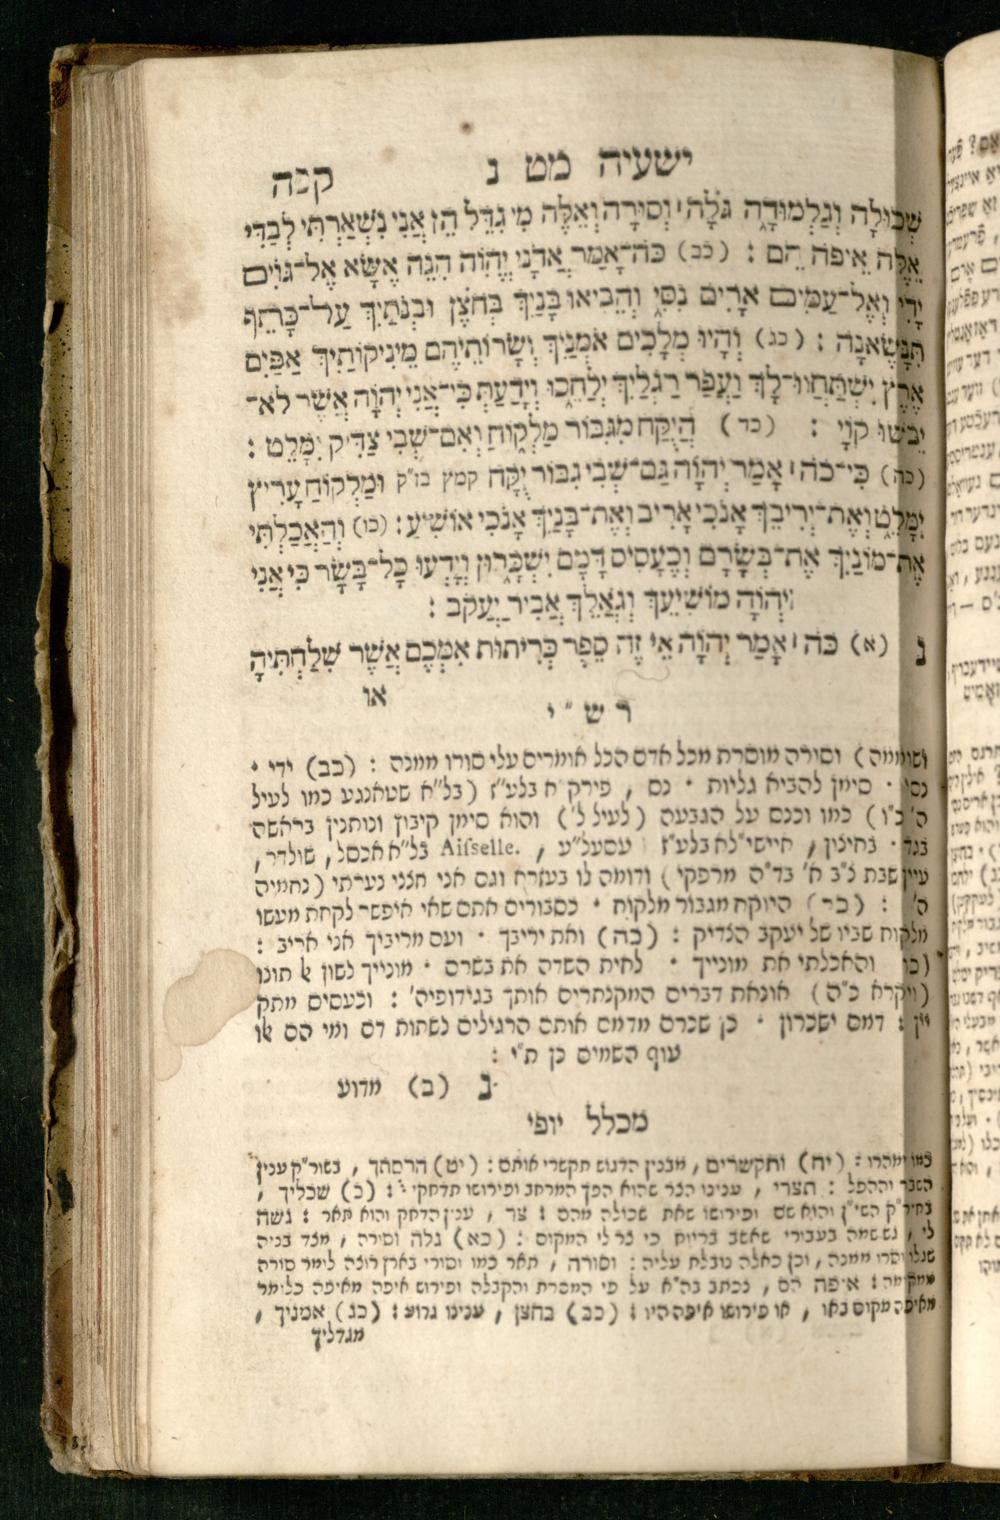 ישעיה מט נ קכה
שְׁכוּלָה וְגַלְמוּדָה גֹּלָה ׀ וְסוּרָה וְאֵלֶּה מִי גִדֵּל הֵן אֲנִי נִשְׁאַרְתִּי לְבַדִּי
אֵלֶּה אֵיפֹה הֵם : (כב) כֹּה־אָמַר אֲדֹנָי יֱהֹוִה הִנֵּה אֶשָּׂא אֶל־גּוֹיִם
יָדִי וְאֶל־עַמִּים אָרִים נִסִּי וְהֵבִיאוּ בָנַיִךְ בְּחֹצֶן וּבְנֹתַיִךְ עַל־כָּתֵף
תִּנָּשֶׂאנָה : (כג) וְהָיוּ מְלָכִים אֹמְנַיִךְ וְשָׂרוֹתֵיהֶם מֵינִיקוֹתַיִךְ אַפַּיִם
אֶרֶץ יִשְׁתַּחֲווּ־לָךְ וַעֲפַר רַגְלַיִךְ יְלַחֵכוּ וְיָדַעַתְּ כִּי־אֲנִי יְהֹוָה אֲשֶׁר לֹא־
יֵבֹשׁוּ קוָֹי : (כד) הֲיֻקַּח מִגִּבּוֹר מַלְקוֹחַ וְאִם־שְׁבִי צַדִּיק יִמָּלֵט :
(כה) כִּי־כֹה ׀ אָמַר יְהֹוָה גַּם־שְׁבִי גִבּוֹר יֻקָּח קמץ בז״ק וּמַלְקוֹחַ עָרִיץ
יִמָּלֵט וְאֶת־יְרִיבֵךְ אָנֹכִי אָרִיב וְאֶת־בָּנַיִךְ אָנֹכִי אוֹשִׁיעַ : (כו) וְהַאֲכַלְתִּי
אֶת־מוֹנַיִךְ אֶת־בְּשָׂרָם וְכֶעָסִיס דָּמָם יִשְׁכָּרוּן וְיָדְעוּ כָל־בָּשָׂר כִּי אֲנִי
יְהֹוָה מוֹשִׁיעֵךְ וְגֹאֲלֵךְ אֲבִיר יַעֲקֹב :
נ (א) כֹּה ׀ אָמַר יְהֹוָה אֵי זֶה סֵפֶר כְּרִיתוּת אִמְּכֶם אֲשֶׁר שִׁלַּחְתִּיהָ
או
ר ש ״ י
ושוממה) וסורה מוסרת מכל אדם הכל אומרים עלי סורו ממנה : (כב) ידי ·
נסי · סימן להביא גליות · נס , פירק״א בלע״ז (בל״א שטאנגע כמו לעיל
ה' כ״ו) כמו וכנס על הגבעה (לעיל ל') והוא סימן קיבוץ ונותנין בראשה
בגד · בחיצין , איישי״לא בלע״ז עסעל״ע , Aifselle. בל״א אכסל , שולדר ,
עיין שבת צ״ב א' בד״ה מרפקי) ודומה לו בעזרא וגם אני חצני נערתי (נחמיה
ה' : (כד) היוקח מגבור מלקוח · כסבורים אתם שאי אופשר לקחת מעשו
מלקוח שביו של יעקב הצדיק : (כה) ואת יריבך · ועם מריביך אני אריב :
(כו והאכלתי את מונייך · לחית השדה את בשרם · מונייך לשון לא תונו
(ויקרא כ״ה) אונאת דברים המקנתרים אותך בגידופיה' : וכעסים מתק
יין : דמם ישכרון · כן שכרם מדמם אותם הרגילים לשתות דם ומי הם לאו
עוף השמים כן ת״י :
נ (ב) מדוע
מכלל יופי
כמו ימהרו : (יח) ותקשרים , מבנין הדגוש תקשרי אותם : (יט) הרסתך , בשור״ק ענין
השבר וההפל : תצרי , ענינו הצר שהוא הפך המרחב ופירושו תדחקי : (כ) שכליך ,
בחיר״ק השי״ן והוא שם ופירושו שאת שכולה מהם : צר , ענין הדחק והוא תאר : גשה
לי , גש שמה בעבורי שאשב בריוח כי צר לי המקום : (כא) גלה וסורה , מצד בניה
שגלו וסרו ממנה , וכן כאלה נובלת עליה : וסורה , תאר כמו וסורי בארץ רוצה לומר סורה
ממקומה : איפה הם , נכתב בה״א על פי המסרת והקבלה ופירוש איפה מאיפה כלומר
מאיפה מקום באו , או פירושו איפה היו : (כב) בחצן , ענינו גרוע : (כג) אמניך ,
מגדליך